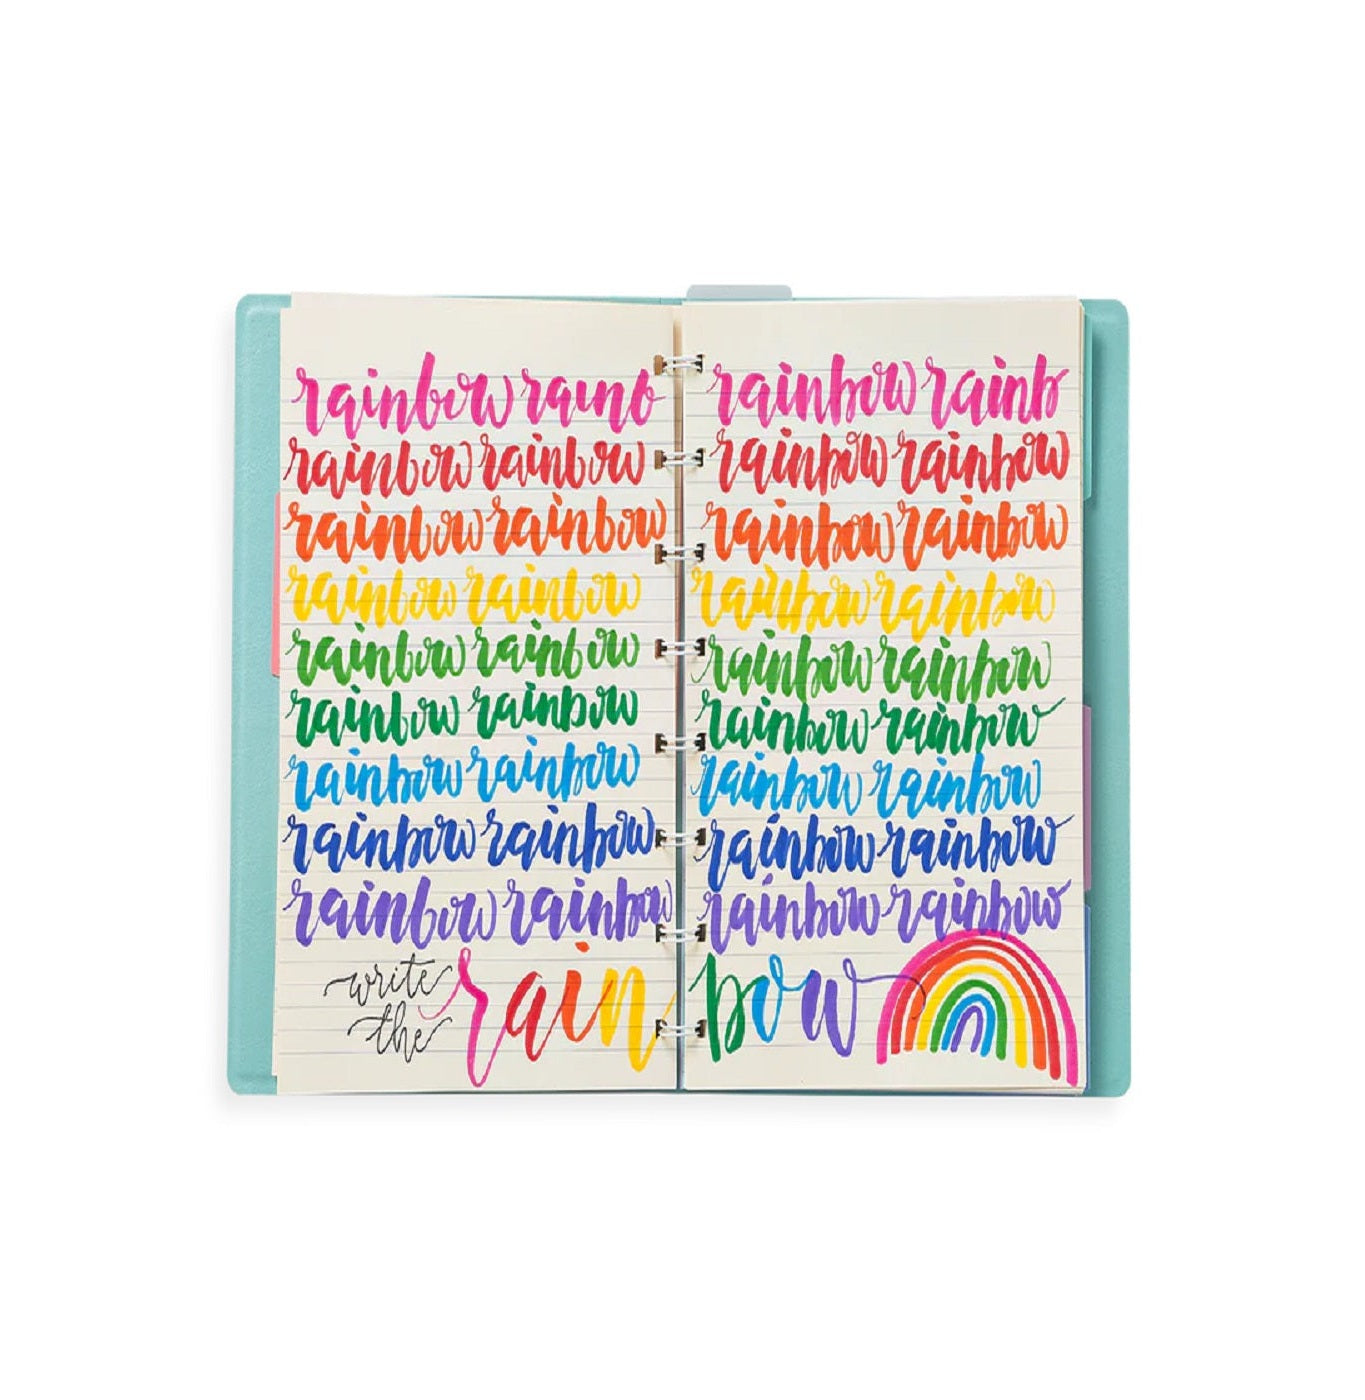 rainbow rainb
rainbow rainbow
rainbow rainbow
rainbow rainbow
rainbow rainbow
rainbow rainbow
rainbow rainbow
rainbow rainbow
rainbow rainbow
write the rain
rainbow rainb
rainbow rainbow
rainbow rainbow
rainbow rainbow
rainbow rainbow
rainbow rainbow
rainbow rainbow
rainbow rainbow
rainbow rainbow
bow